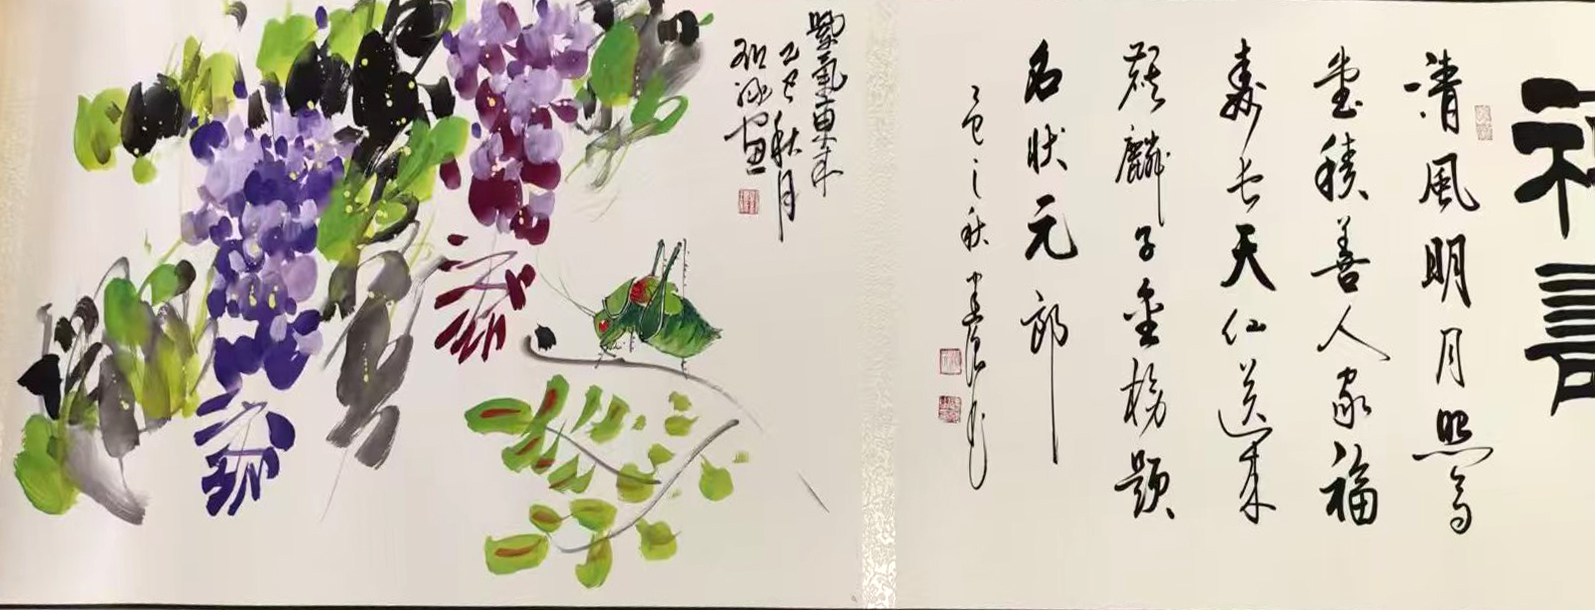 清風明月照高
堂積善人家福
壽長天仙送來
麒麟子金榜題
名狀元郎
乙巳之秋
紫氣東來
乙巳秋月
畫